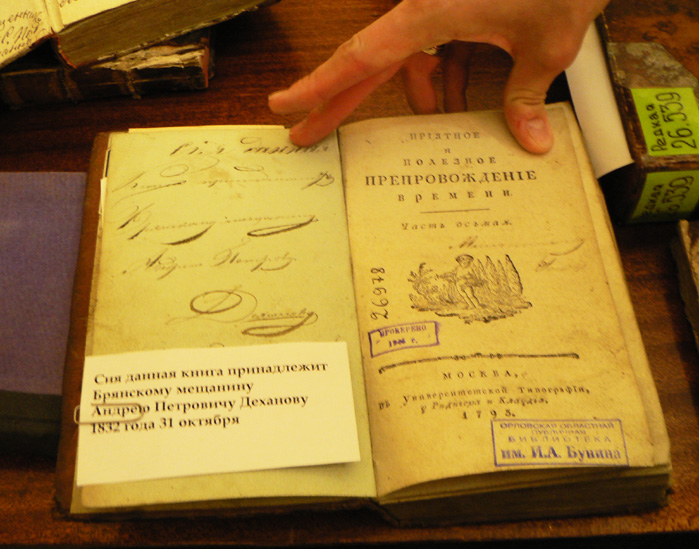 Сія данная
Книга принадлежитъ
Брянскому мещанину
Андрею Петрову
Деханову
Сия данная книга принадлежит
Брянскому мещанину
Андрею Петровичу Деханову
1832 года 31 октября
ПРІЯТНОЕ
И
ПОЛЕЗНОЕ
ПРЕПРОВОЖДЕНІЕ
ВРЕМЕНИ.
Часть осьмая.
26978
ПРОВЕРЕНО
МОСКВА,
въ Университетской Типографіи,
у Ридигера и Клаудія.
1795.
ОРЛОВСКАЯ ОБЛАСТНАЯ
ПУБЛИЧНАЯ
БИБЛИОТЕКА
им. И.А. Бунина
Редкая
26.539
26.539